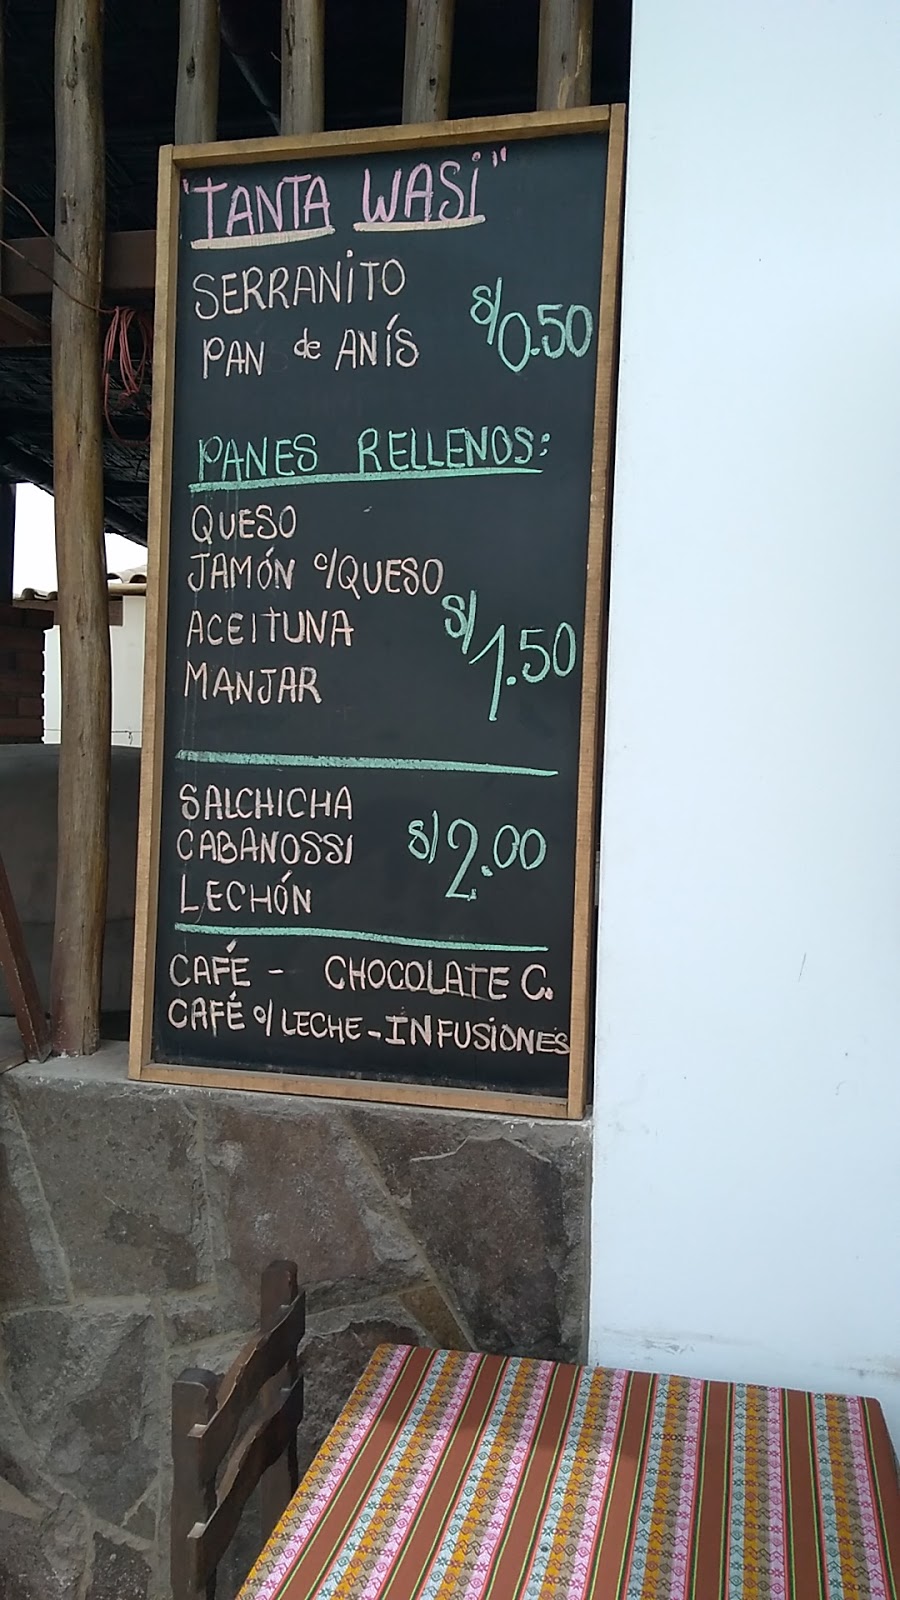 "TANTA WASi"
SERRANiTO
PAN de ANÍS
S/0.50
PANES RELLENOS:
QUESO
JAMÓN c/QUESO
ACEITUNA
MANJAR
S/1.50
SALCHICHA
CABANOSSI
LECHÓN
S/2.00
CAFÉ - CHOCOLATE C.
CAFÉ c/LECHE - INFUSIONES